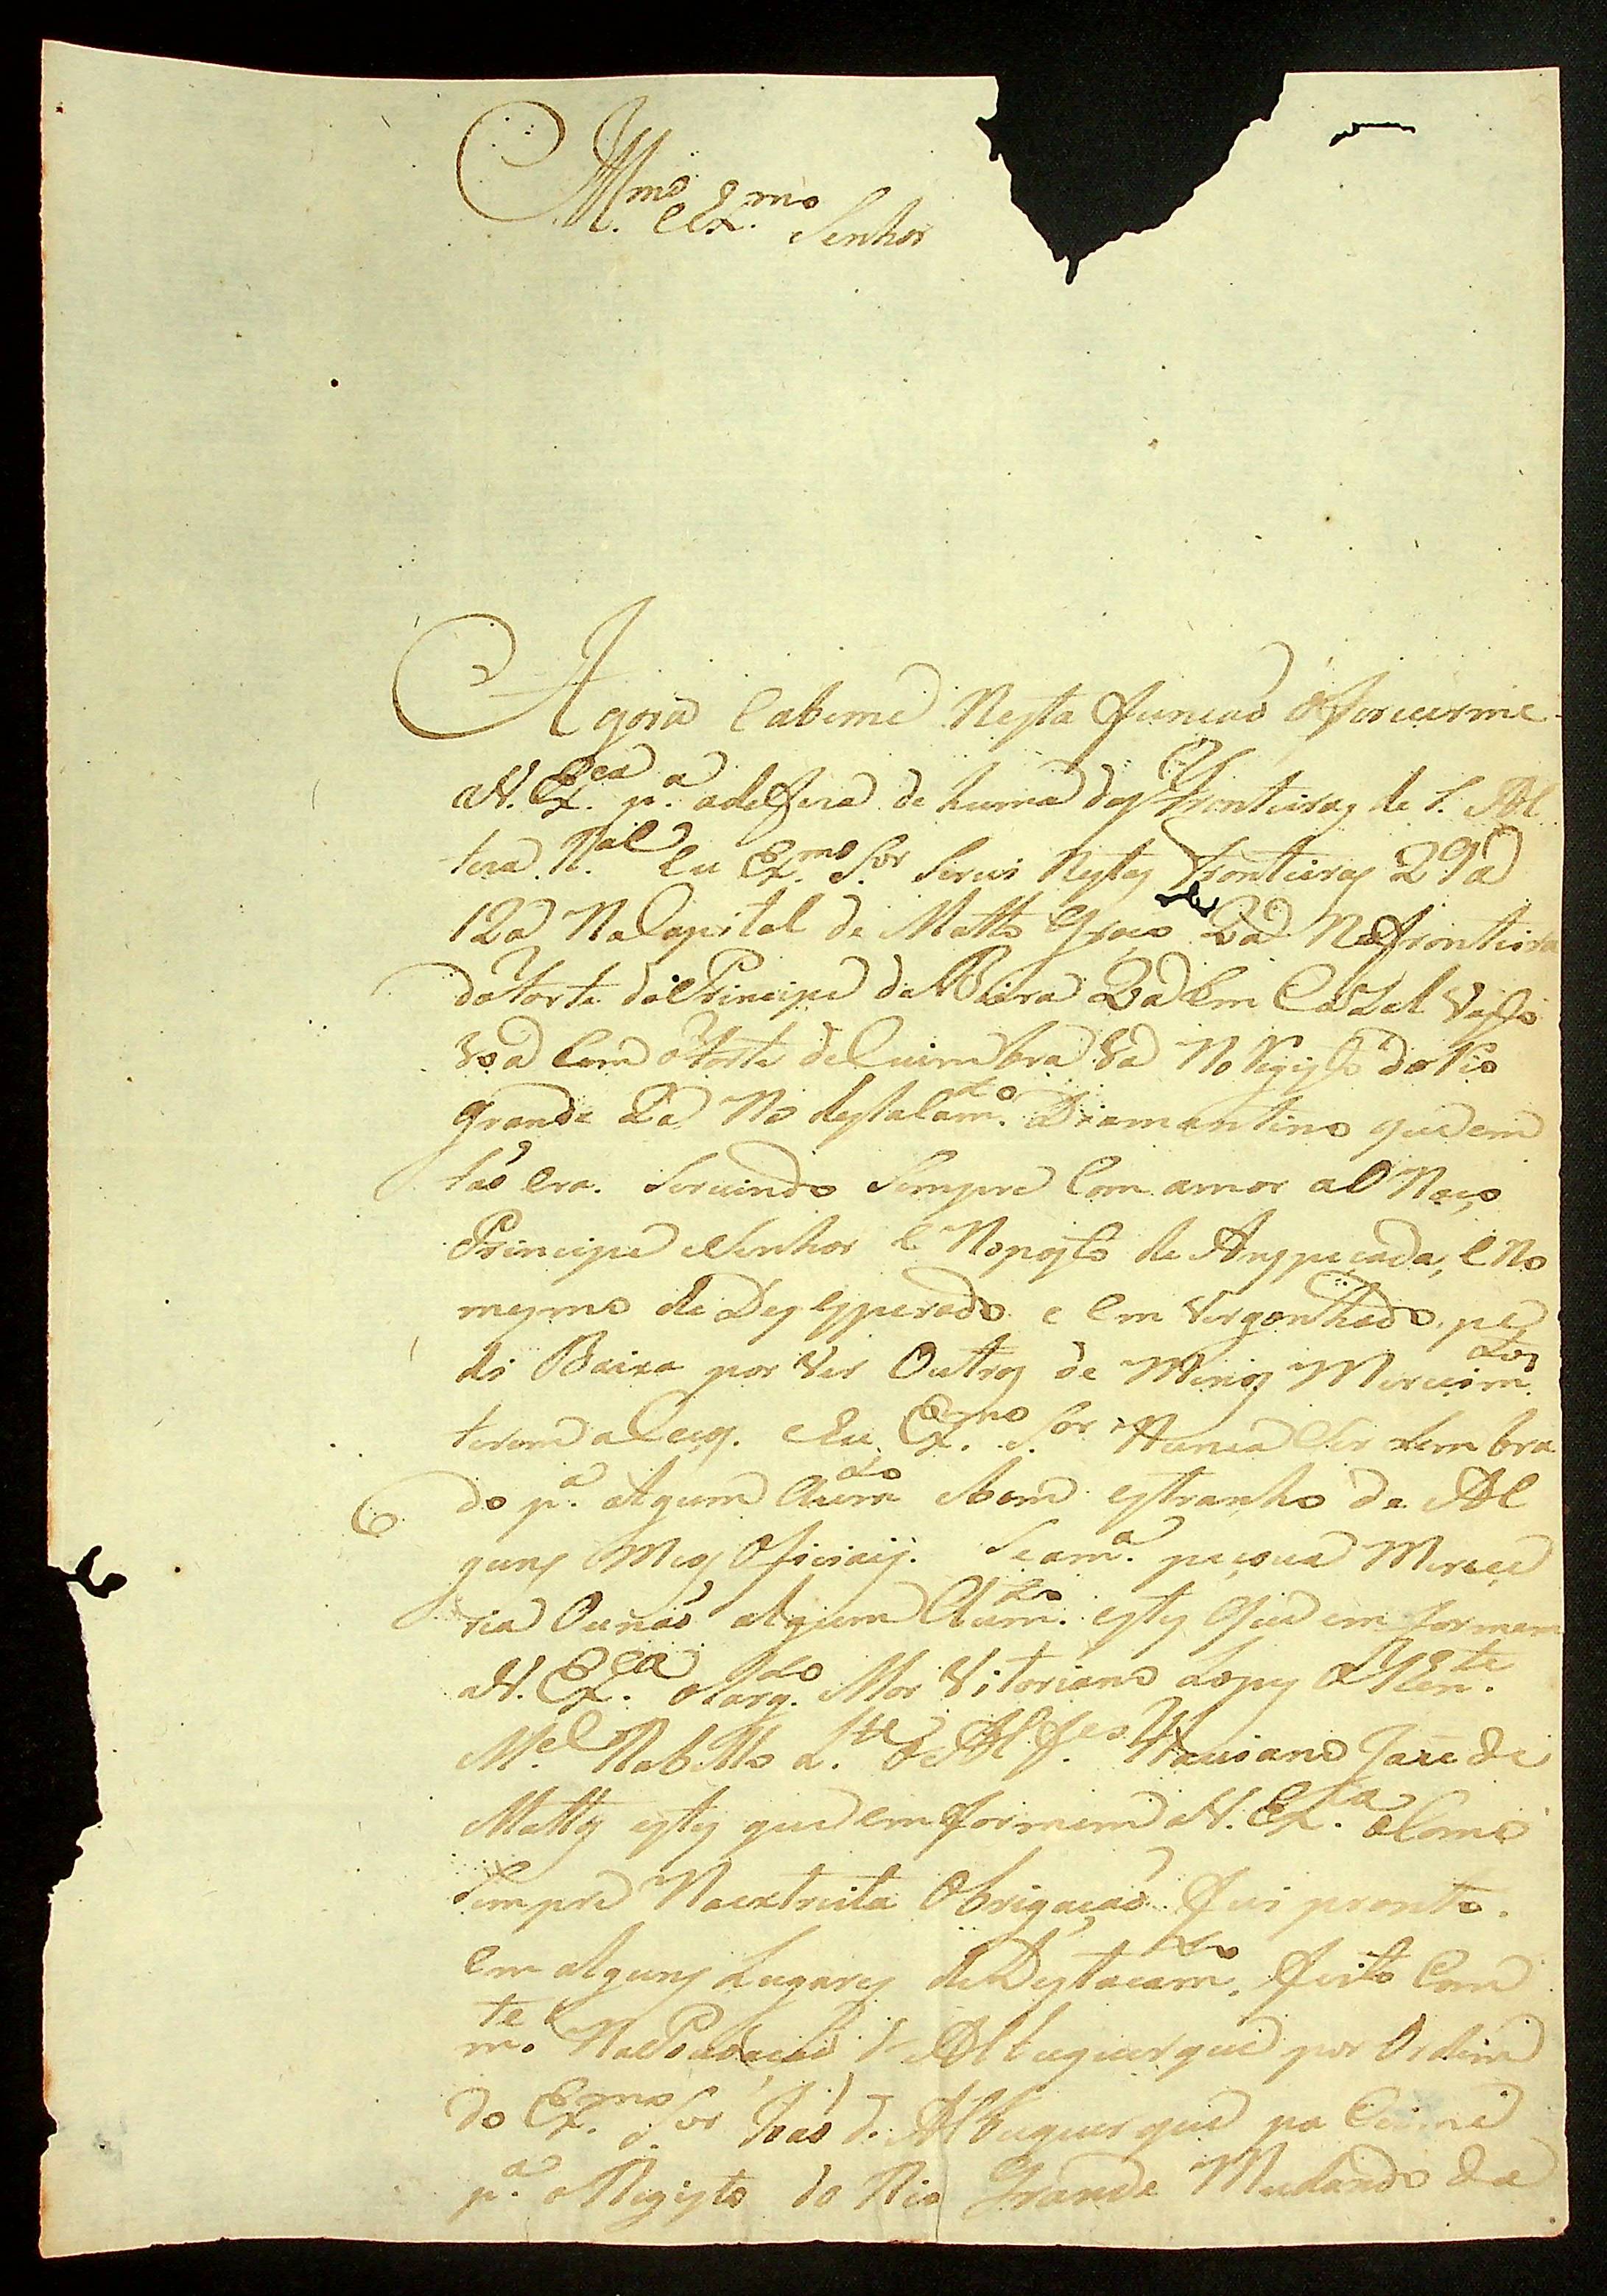 Ill.mo e Ex.mo Senhor
Agora Cabeme Nesta funcaõ ofrecerme
aV. Ex.cia p.a adefeza de huma das Fronteiras de S. Al
teza R.al Eu Ex.mo S.or Servi Nestas Fronteiras 29 a
12 a Na Capital de Matto Groço 2 a Na fronteira
do Forte do Principe da Beira 2 a Em Cazal Vasco
a Com o Forte de Cuimbra a No Registo do Rio
grande 2 a No destacam.to Diamantino que em
taõ Era. Servindo Sempre Com amor aO Noço
Principe e Senhor e No posto de Anspeçada, e No
mesmo de Desesperado e Em Vergonhado, pe
di Baixa por Ver Outros de Menos Mereçim.tos
terem aCeços. e Eu Ex.mo S.or Nunca Ser Lembra
do p.a algum Aum.to e bem estranho de Al
guns Meos Ofiçiais. Se a m.a peçoua Mereçe
ria Ou naõ algum Aum.to estes Que em formem
aV. Ex.cia o Sarg.to Mor Vitoriano Lopes o Ten.te
M.el Rabello L.te de Alf.es Jozé de
Mattos estes que em formem aV. Ex.cia e Como
Sempre Na extreita Obrigaçaõ fui pronto.
Em alguns Lugares de Destacam.to feito Com
m.te Na Povoaçaõ d Albuquerque por Ordem
do Ex.mo S.or Joaõ d. Albuquerque pa Ceime
p.a o Registo do Rio Grande Mudando da